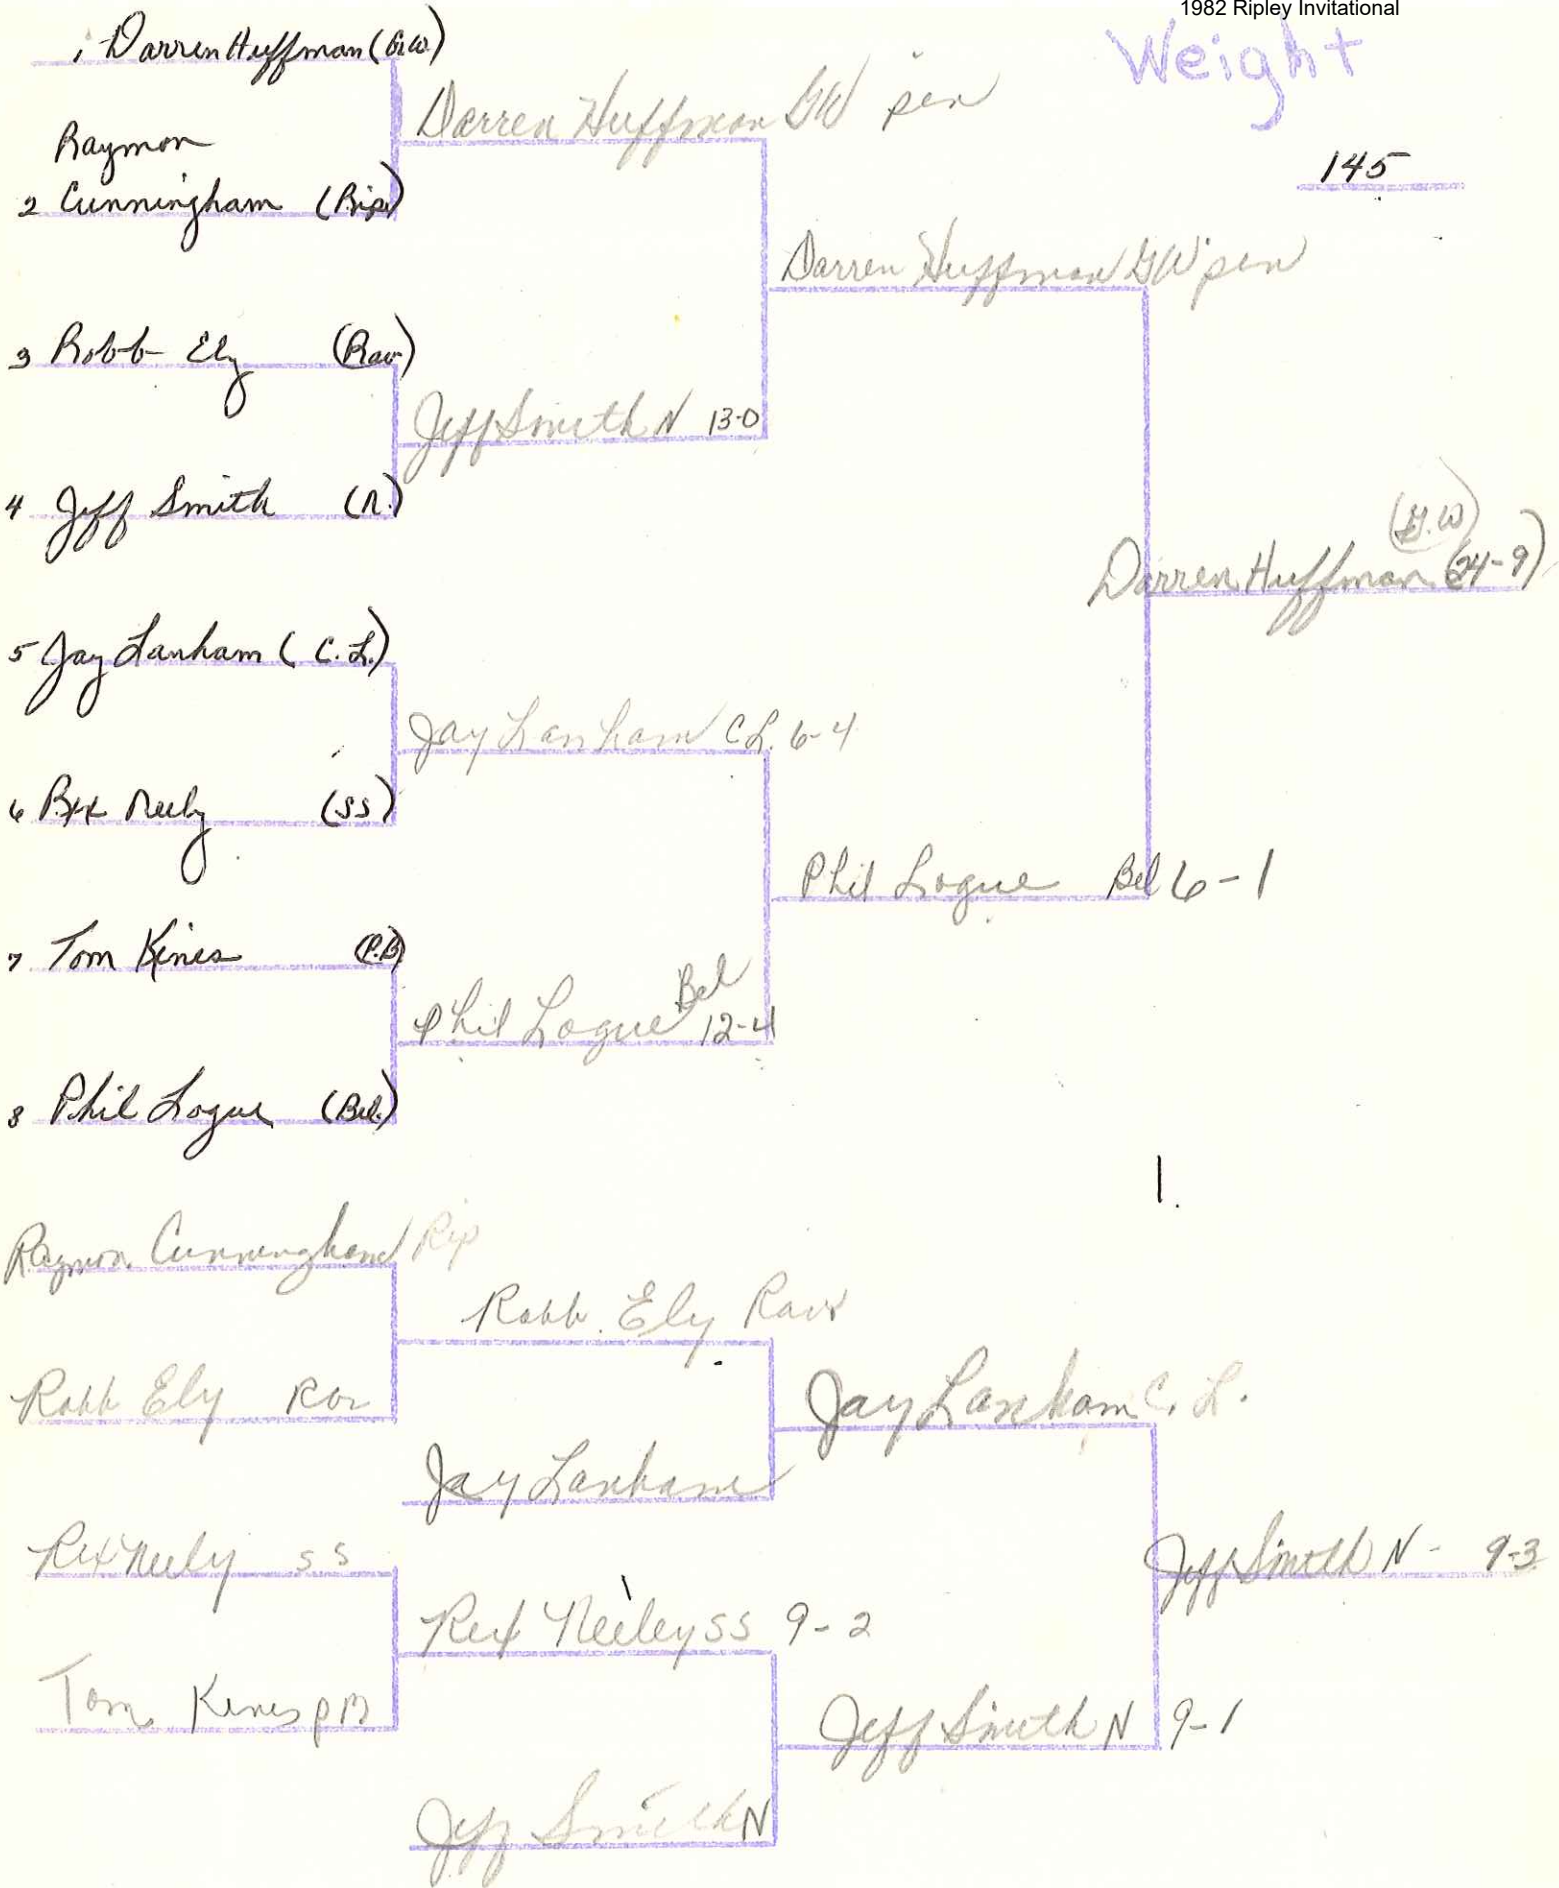 1982 Ripley Invitational
Weight
145
1 Darren Huffman (G.W.)
Raymon
2 Cunningham (Rip)
3 Robb Ely (Rav)
4 Jeff Smith (N.)
5 Jay Lanham (C.L.)
6 Rex Neely (SS)
7 Tom Kines (P.B)
8 Phil Logue (Bel.)
Darren Huffman GW pin
Jeff Smith N 13-0
Jay Lanham C.L. 6-4
Phil Logue Bel 12-4
Darren Huffman GW pin
Phil Logue Bel 6-1
(G.W)
Darren Huffman (24-9)
Raymon Cunningham Rip
Robb Ely Rav
Rex Neely SS
Tom Kines PB
Robb Ely Rav
Jay Lanham
Rex Neeley SS 9-2
Jeff Smith N
Jay Lanham C.L.
Jeff Smith N 9-1
Jeff Smith N - 9-3